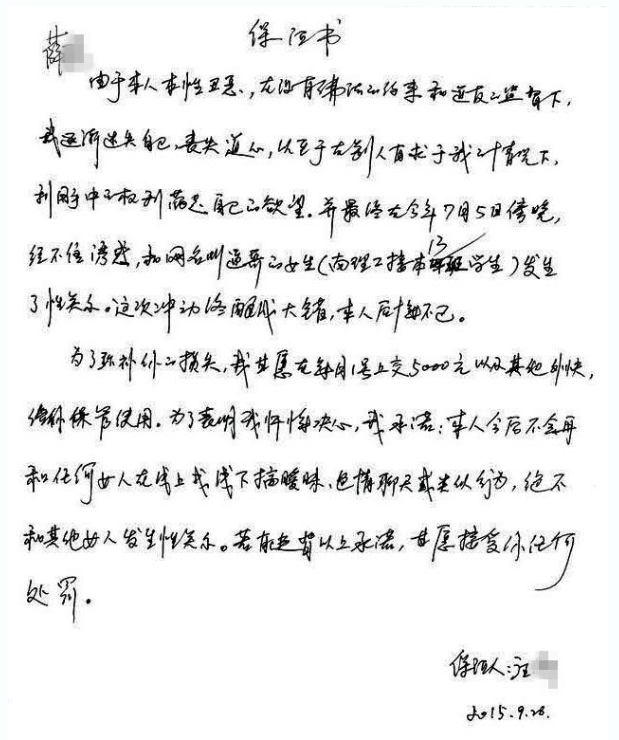 保证书
薛
由于本人本性丑恶,在没有佛法的约束和道友的监督下,
我逐渐迷失自己,丧失道心,以至于在别人有求于我之情况下,
利用手中的权利满足自己的欲望。并最终在今年7月5日傍晚,
经不住诱惑,和网名叫逼哥的女生(南理工接本13学生)发生
了性关系。这次冲动终酿成大错,本人后悔不已。
为了弥补你的损失,我甘愿在每月1号上交5000元以及其他外快,
给你保管使用。为了表明我忏悔决心,我承诺:本人今后不会再
和任何女人在线上或线下搞暧昧、色情聊天或类似行为,绝不
和其他女人发生性关系。若有违背以上承诺,甘愿接受你任何
处罚。
保证人:汪
2015.9.28.